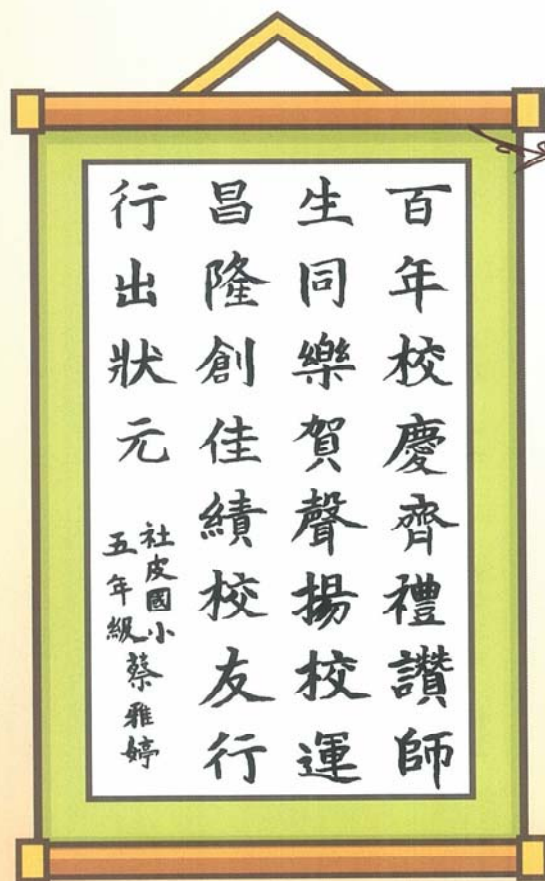 百年校慶齊禮讚師
生同樂賀聲揚校運
昌隆創佳績校友行
行出狀元
社皮國小
五年級
蔡雅婷